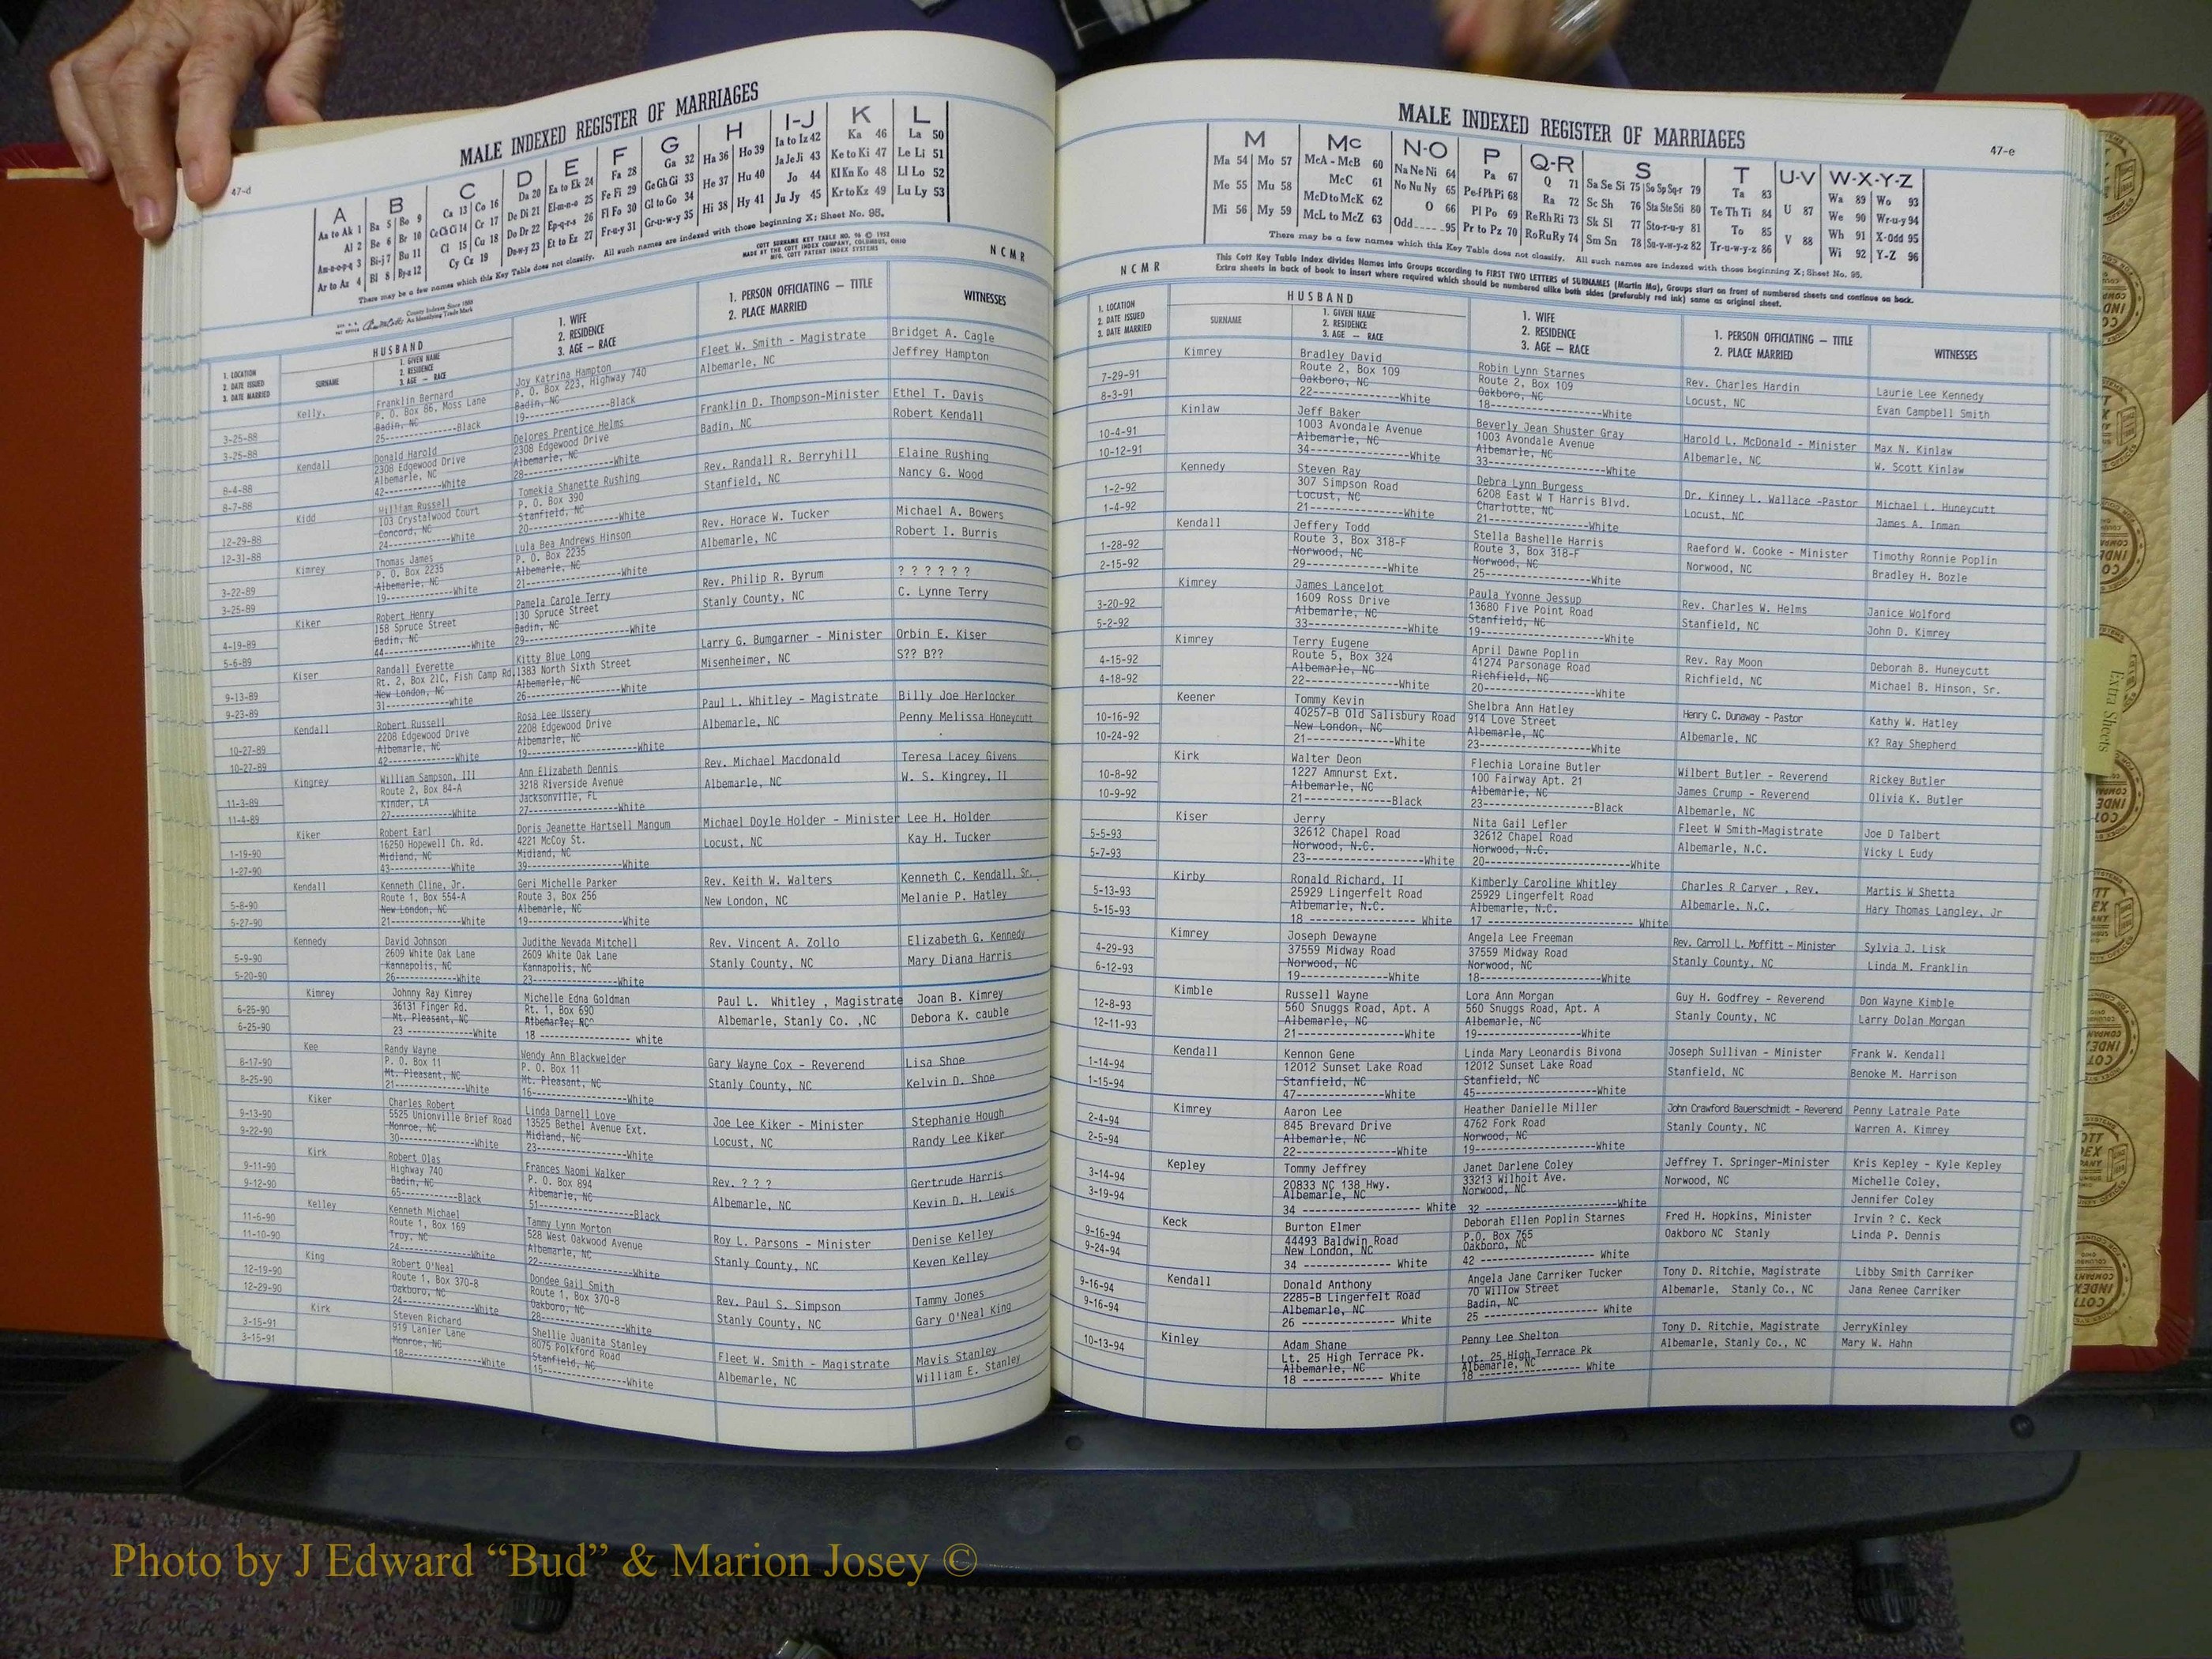 MALE INDEXED REGISTER OF MARRIAGES
47-d
A B C D E F G H I-J K L
Aa to Ak 1 Ba 5 Bo 9 Ca 13 Co 16 Da 20 Ea to Ek 24 Fa 28 Ga 32 Ha 36 Ho 39 Ia to Iz 42 Ka 46 La 50
Al 2 Be 6 Br 10 Ce Ch Ci 14 Cr 17 De Di 21 El-m-n-o 25 Fe Fi 29 Ge Gh Gi 33 He 37 Hu 40 Ja Je Ji 43 Ke to Ki 47 Le Li 51
Am-n-o-p-q 3 Bi-j 7 Bu 11 Cl 15 Cu 18 Do Dr 22 Ep-q-r-s 26 Fl Fo 30 Gl to Go 34 Hi 38 Hy 41 Jo 44 Kl Kn Ko 48 Ll Lo 52
Ar to Az 4 Bl 8 By-z 12 Cy Cz 19 Du-w-y 23 Et to Ez 27 Fr-u-y 31 Gr-u-w-y 35 Ju Jy 45 Kr to Kz 49 Lu Ly 53
There may be a few names which this Key Table does not classify. All such names are indexed with those beginning X; Sheet No. 95.
COTT SURNAME KEY TABLE NO. 96 © 1952
MADE BY THE COTT INDEX COMPANY, COLUMBUS, OHIO
MFG. COTT PATENT INDEX SYSTEMS
County Indexes Since 1888
An Identifying Trade Mark
NCMR
1. LOCATION
2. DATE ISSUED
3. DATE MARRIED
HUSBAND
SURNAME
1. GIVEN NAME
2. RESIDENCE
3. AGE — RACE
1. WIFE
2. RESIDENCE
3. AGE — RACE
1. PERSON OFFICIATING — TITLE
2. PLACE MARRIED
WITNESSES
Kelly, Franklin Bernard Joy Katrina Hampton Fleet W. Smith - Magistrate Bridget A. Cagle
P. O. Box 86, Moss Lane P. O. Box 223, Highway 740 Albemarle, NC Jeffrey Hampton
3-25-88 Badin, NC Badin, NC
3-25-88 25------------Black 19------------Black
Kendall Donald Harold Delores Prentice Helms Franklin D. Thompson-Minister Ethel T. Davis
2308 Edgewood Drive 2308 Edgewood Drive Badin, NC Robert Kendall
8-4-88 Albemarle, NC Albemarle, NC
8-7-88 42------------White 28------------White
Kidd William Russell Tomekia Shanette Rushing Rev. Randall R. Berryhill Elaine Rushing
103 Crystalwood Court P. O. Box 390 Stanfield, NC Nancy G. Wood
12-29-88 Concord, NC Stanfield, NC
12-31-88 24------------White 20------------White
Kimrey Thomas James Lula Bea Andrews Hinson Rev. Horace W. Tucker Michael A. Bowers
P. O. Box 2235 P. O. Box 2235 Albemarle, NC Robert I. Burris
3-22-89 Albemarle, NC Albemarle, NC
3-25-89 19------------White 21------------White
Kiker Robert Henry Pamela Carole Terry Rev. Philip R. Byrum ? ? ? ? ? ?
158 Spruce Street 130 Spruce Street Stanly County, NC C. Lynne Terry
4-19-89 Badin, NC Badin, NC
5-6-89 44------------White 29------------White
Kiser Randall Everette Kitty Blue Long Larry G. Bumgarner - Minister Orbin E. Kiser
Rt. 2, Box 21C, Fish Camp Rd. 1383 North Sixth Street Misenheimer, NC S?? B??
9-13-89 New London, NC Albemarle, NC
9-23-89 31------------white 26------------White
Kendall Robert Russell Rosa Lee Ussery Paul L. Whitley - Magistrate Billy Joe Herlocker
2208 Edgewood Drive 2208 Edgewood Drive Albemarle, NC Penny Melissa Honeycutt
10-27-89 Albemarle, NC Albemarle, NC
10-27-89 42------------White 19------------White
Kingrey William Sampson, III Ann Elizabeth Dennis Rev. Michael Macdonald Teresa Lacey Givens
Route 2, Box 84-A 3218 Riverside Avenue Albemarle, NC W. S. Kingrey, II
11-3-89 Kinder, LA Jacksonville, FL
11-4-89 27------------White 27------------White
Kiker Robert Earl Doris Jeanette Hartsell Mangum Michael Doyle Holder - Minister Lee H. Holder
16250 Hopewell Ch. Rd. 4221 McCoy St. Locust, NC Kay H. Tucker
1-19-90 Midland, NC Midland, NC
1-27-90 43------------White 39------------White
Kendall Kenneth Cline, Jr. Geri Michelle Parker Rev. Keith W. Walters Kenneth C. Kendall, Sr.
5-8-90 Route 1, Box 554-A Route 3, Box 256 New London, NC Melanie P. Hatley
New London, NC Albemarle, NC
5-27-90 21------------White 19------------White
Kennedy David Johnson Judithe Nevada Mitchell Rev. Vincent A. Zollo Elizabeth G. Kennedy
5-9-90 2609 White Oak Lane 2609 White Oak Lane Stanly County, NC Mary Diana Harris
Kannapolis, NC Kannapolis, NC
5-20-90 26------------White 23------------White
Kimrey Johnny Ray Kimrey Michelle Edna Goldman Paul L. Whitley , Magistrate Joan B. Kimrey
6-25-90 36131 Finger Rd. Rt. 1, Box 690 Albemarle, Stanly Co. ,NC Debora K. cauble
Mt. Pleasant, NC Albemarle, NC
6-25-90 23 ------------White 18 ------------ white
Kee Randy Wayne Wendy Ann Blackwelder Gary Wayne Cox - Reverend Lisa Shoe
8-17-90 P. O. Box 11 P. O. Box 11 Stanly County, NC Kelvin D. Shoe
Mt. Pleasant, NC Mt. Pleasant, NC
8-25-90 21------------White 16------------White
Kiker Charles Robert Linda Darnell Love Joe Lee Kiker - Minister Stephanie Hough
9-13-90 5525 Unionville Brief Road 13525 Bethel Avenue Ext. Locust, NC Randy Lee Kiker
Monroe, NC Midland, NC
9-22-90 30------------White 23------------White
Kirk Robert Olas Frances Naomi Walker Rev. ? ? ? Gertrude Harris
9-11-90 Highway 740 P. O. Box 894 Albemarle, NC Kevin D. H. Lewis
Badin, NC Albemarle, NC
9-12-90 65------------Black 51------------Black
Kelley Kenneth Michael Tammy Lynn Morton Roy L. Parsons - Minister Denise Kelley
11-6-90 Route 1, Box 169 528 West Oakwood Avenue Stanly County, NC Keven Kelley
Troy, NC Albemarle, NC
11-10-90 24------------White 22------------White
King Robert O'Neal Dondee Gail Smith Rev. Paul S. Simpson Tammy Jones
12-19-90 Route 1, Box 370-8 Route 1, Box 370-8 Stanly County, NC Gary O'Neal King
Oakboro, NC Oakboro, NC
12-29-90 24------------White 28------------White
Kirk Steven Richard Shellie Juanita Stanley Fleet W. Smith - Magistrate Mavis Stanley
3-15-91 919 Lanier Lane 8075 Polkford Road Albemarle, NC William E. Stanley
Monroe, NC Stanfield, NC
3-15-91 18------------White 15------------White
MALE INDEXED REGISTER OF MARRIAGES
47-e
M Mc N-O P Q-R S T U-V W-X-Y-Z
Ma 54 Mo 57 McA - McB 60 Na Ne Ni 64 Pa 67 Q 71 Sa Se Si 75 So Sp Sq-r 79 Ta 83 U 87 Wa 89 Wo 93
Me 55 Mu 58 McC 61 No Nu Ny 65 Pe-f Ph Pi 68 Ra 72 Sc Sh 76 Sta Ste Sti 80 Te Th Ti 84 V 88 We 90 Wr-u-y 94
Mi 56 My 59 McD to McK 62 O 66 Pl Po 69 Re Rh Ri 73 Sk Sl 77 Sto-r-u-y 81 To 85 Wh 91 X-Odd 95
McL to McZ 63 Odd 95 Pr to Pz 70 Ro Ru Ry 74 Sm Sn 78 Su-v-w-y-z 82 Tr-u-w-y-z 86 Wi 92 Y-Z 96
There may be a few names which this Key Table does not classify. All such names are indexed with those beginning X; Sheet No. 95.
This Cott Key Table Index divides Names into Groups according to FIRST TWO LETTERS of SURNAMES (Martin Ma), Groups start on front of numbered sheets and continue on back.
Extra sheets in back of book to insert where required which should be numbered alike both sides (preferably red ink) same as original sheet.
NCMR
1. LOCATION
2. DATE ISSUED
3. DATE MARRIED
HUSBAND
SURNAME
1. GIVEN NAME
2. RESIDENCE
3. AGE — RACE
1. WIFE
2. RESIDENCE
3. AGE — RACE
1. PERSON OFFICIATING — TITLE
2. PLACE MARRIED
WITNESSES
Kimrey Bradley David Robin Lynn Starnes Rev. Charles Hardin Laurie Lee Kennedy
7-29-91 Route 2, Box 109 Route 2, Box 109 Locust, NC Evan Campbell Smith
Oakboro, NC Oakboro, NC
8-3-91 22------------White 18------------White
Kinlaw Jeff Baker Beverly Jean Shuster Gray Harold L. McDonald - Minister Max N. Kinlaw
10-4-91 1003 Avondale Avenue 1003 Avondale Avenue Albemarle, NC W. Scott Kinlaw
Albemarle, NC Albemarle, NC
10-12-91 34------------White 33------------White
Kennedy Steven Ray Debra Lynn Burgess Dr. Kinney L. Wallace -Pastor Michael L. Huneycutt
1-2-92 307 Simpson Road 6208 East W T Harris Blvd. Locust, NC James A. Inman
Locust, NC Charlotte, NC
1-4-92 21------------White 21------------White
Kendall Jeffery Todd Stella Bashelle Harris Raeford W. Cooke - Minister Timothy Ronnie Poplin
1-28-92 Route 3, Box 318-F Route 3, Box 318-F Norwood, NC Bradley H. Bozle
Norwood, NC Norwood, NC
2-15-92 29------------White 25------------White
Kimrey James Lancelot Paula Yvonne Jessup Rev. Charles W. Helms Janice Wolford
3-20-92 1609 Ross Drive 13680 Five Point Road Stanfield, NC John D. Kimrey
Albemarle, NC Stanfield, NC
5-2-92 33------------White 19------------White
Kimrey Terry Eugene April Dawne Poplin Rev. Ray Moon Deborah B. Huneycutt
4-15-92 Route 5, Box 324 41274 Parsonage Road Richfield, NC Michael B. Hinson, Sr.
Albemarle, NC Richfield, NC
4-18-92 22------------White 20------------White
Keener Tommy Kevin Shelbra Ann Hatley Henry C. Dunaway - Pastor Kathy W. Hatley
10-16-92 40257-B Old Salisbury Road 914 Love Street Albemarle, NC K? Ray Shepherd
New London, NC Albemarle, NC
10-24-92 21------------White 23------------White
Kirk Walter Deon Flechia Loraine Butler Wilbert Butler - Reverend Rickey Butler
10-8-92 1227 Amnurst Ext. 100 Fairway Apt. 21 James Crump - Reverend Olivia K. Butler
Albemarle, NC Albemarle, NC Albemarle, NC
10-9-92 21------------Black 23------------Black
Kiser Jerry Nita Gail Lefler Fleet W Smith-Magistrate Joe D Talbert
5-5-93 32612 Chapel Road 32612 Chapel Road Albemarle, N.C. Vicky L Eudy
Norwood, N.C. Norwood, N.C.
5-7-93 23------------White 20------------White
Kirby Ronald Richard, II Kimberly Caroline Whitley Charles R Carver , Rev. Martis W Shetta
5-13-93 25929 Lingerfelt Road 25929 Lingerfelt Road Albemarle, N.C. Hary Thomas Langley, Jr
Albemarle, N.C. Albemarle, N.C.
5-15-93 18 ------------ White 17 ------------ White
Kimrey Joseph Dewayne Angela Lee Freeman Rev. Carroll L. Moffitt - Minister Sylvia J. Lisk
4-29-93 37559 Midway Road 37559 Midway Road Stanly County, NC Linda M. Franklin
Norwood, NC Norwood, NC
6-12-93 19------------White 18------------White
Kimble Russell Wayne Lora Ann Morgan Guy H. Godfrey - Reverend Don Wayne Kimble
12-8-93 560 Snuggs Road, Apt. A 560 Snuggs Road, Apt. A Stanly County, NC Larry Dolan Morgan
Albemarle, NC Albemarle, NC
12-11-93 21------------White 19------------White
Kendall Kennon Gene Linda Mary Leonardis Bivona Joseph Sullivan - Minister Frank W. Kendall
1-14-94 12012 Sunset Lake Road 12012 Sunset Lake Road Stanfield, NC Benoke M. Harrison
Stanfield, NC Stanfield, NC
1-15-94 47------------White 45------------White
Kimrey Aaron Lee Heather Danielle Miller John Crawford Bauerschmidt - Reverend Penny Latrale Pate
2-4-94 845 Brevard Drive 4762 Fork Road Stanly County, NC Warren A. Kimrey
Albemarle, NC Norwood, NC
2-5-94 22------------White 19------------White
Kepley Tommy Jeffrey Janet Darlene Coley Jeffrey T. Springer-Minister Kris Kepley - Kyle Kepley
3-14-94 20833 NC 138 Hwy. 33213 Wilhoit Ave. Norwood, NC Michelle Coley,
3-19-94 Albemarle, NC Norwood, NC Jennifer Coley
34 ------------ White 32 ------------White
Keck Burton Elmer Deborah Ellen Poplin Starnes Fred H. Hopkins, Minister Irvin ? C. Keck
9-16-94 44493 Baldwin Road P.O. Box 765 Oakboro NC Stanly Linda P. Dennis
9-24-94 New London, NC Oakboro, NC
34 ------------ White 42 ------------ White
Kendall Donald Anthony Angela Jane Carriker Tucker Tony D. Ritchie, Magistrate Libby Smith Carriker
9-16-94 2285-B Lingerfelt Road 70 Willow Street Albemarle, Stanly Co., NC Jana Renee Carriker
9-16-94 Albemarle, NC Badin, NC
26 ------------ White 25 ------------ White
Kinley Adam Shane Penny Lee Shelton Tony D. Ritchie, Magistrate JerryKinley
10-13-94 Lt. 25 High Terrace Pk. Lot. 25 High Terrace Pk Albemarle, Stanly Co., NC Mary W. Hahn
Albemarle, NC Albemarle, NC
18 ------------ White 18 ------------ White
Extra Sheets
Photo by J Edward “Bud” & Marion Josey ©